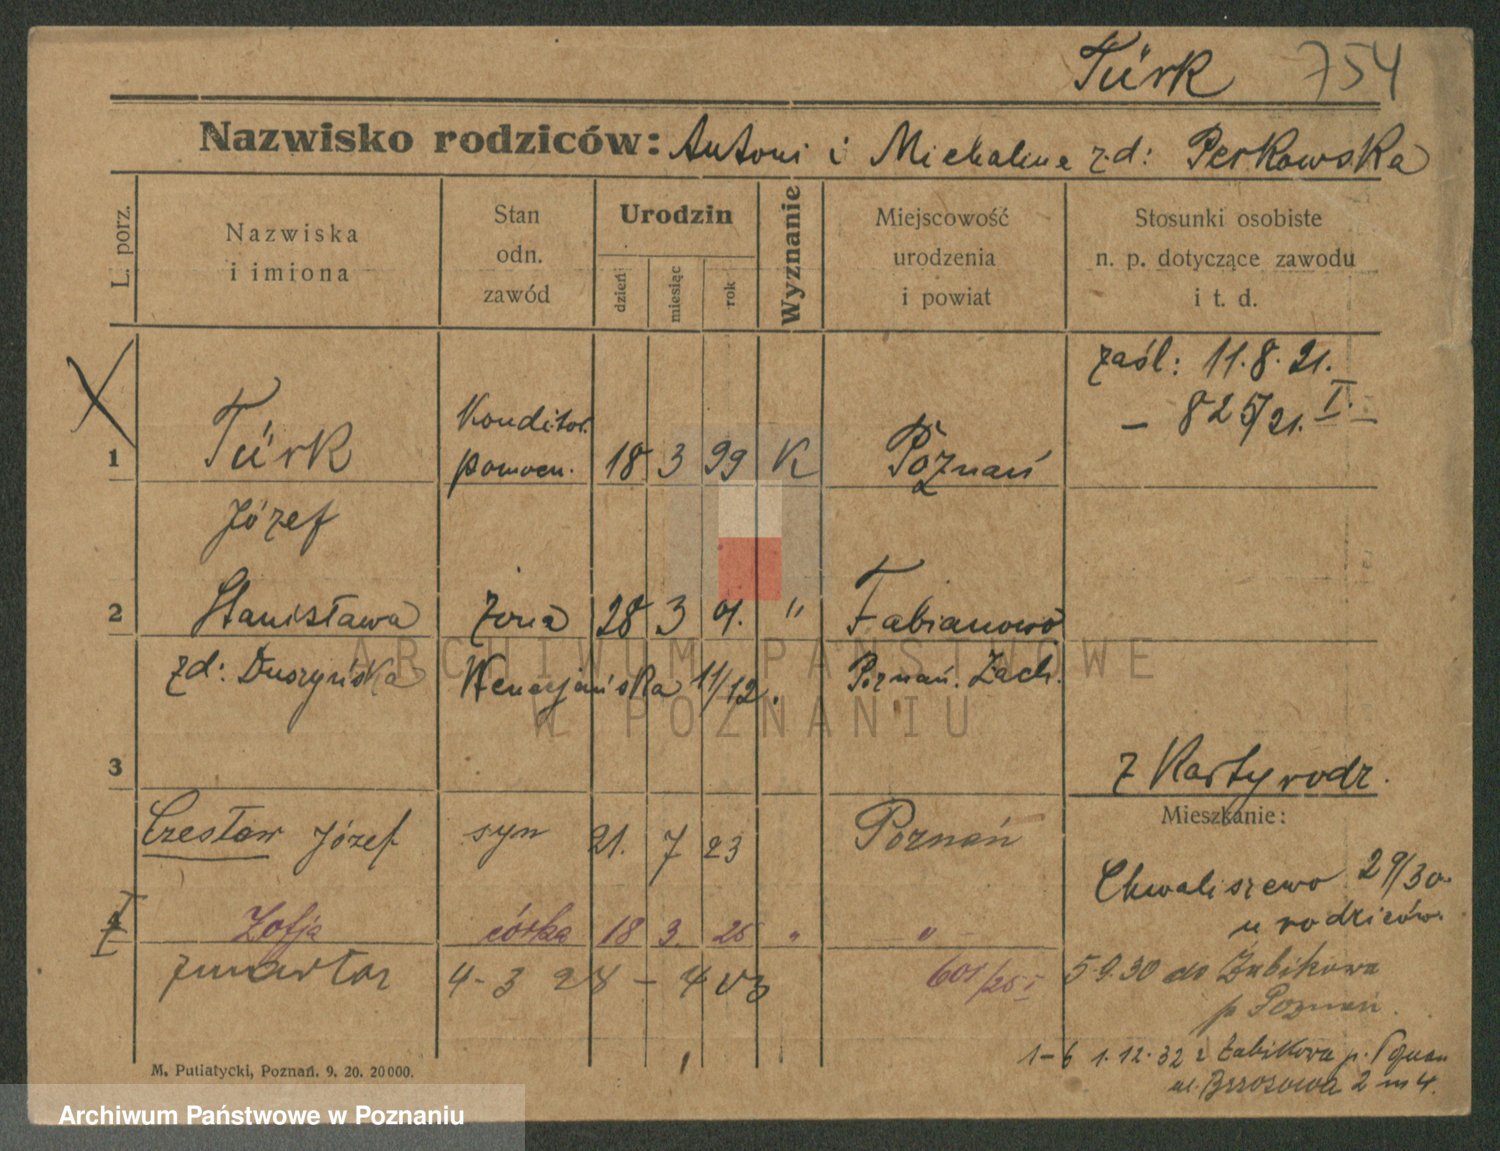 Türk 754
Nazwisko rodziców: Antoni i Michalina z.d: Perkowska
L. porz.
Nazwiska
i imiona
Stan
odn.
zawód
Urodzin
dzień
miesiąc
rok
Wyznanie
Miejscowość
urodzenia
i powiat
Stosunki osobiste
n. p. dotyczące zawodu
i t. d.
zaśl: 11.8.21.
– 825/21. I. –
1 Türk Konditor. pomocn. 18 3 99 K Poznań
Józef
2 Stanisława żona 28 3 01. " Fabianowo
zd: Duszyńska Wenecjańska 11/12. Poznań. Zach.
3
z Karty rodz.
Mieszkanie:
Czesław Józef syn 21. 7 23 Poznań
Chwaliszewo 29/30.
u rodziców.
4 Zofja córka 18 3. 26 " "
zmarła 4-3 28 –
601/26 I
5.9.30 do Żabikowa
p Poznań.
1–6 1.12.32 z Żabikowa p. Poznań
ul. Brzozowa 2 m 4.
M. Putiatycki, Poznań. 9. 20. 20000.
ARCHIWUM PAŃSTWOWE
W POZNANIU
Archiwum Państwowe w Poznaniu